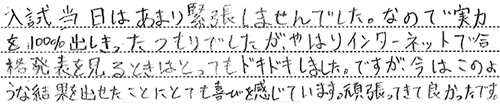 入試当日はあまり緊張しませんでした。なので実力
を100%出しきったつもりでしたが、やはりインターネットで合
格発表を見るときはとってもドキドキしました。ですが今はこのよ
うな結果を出せたことにとても喜びを感じています。頑張ってきて良かったです。